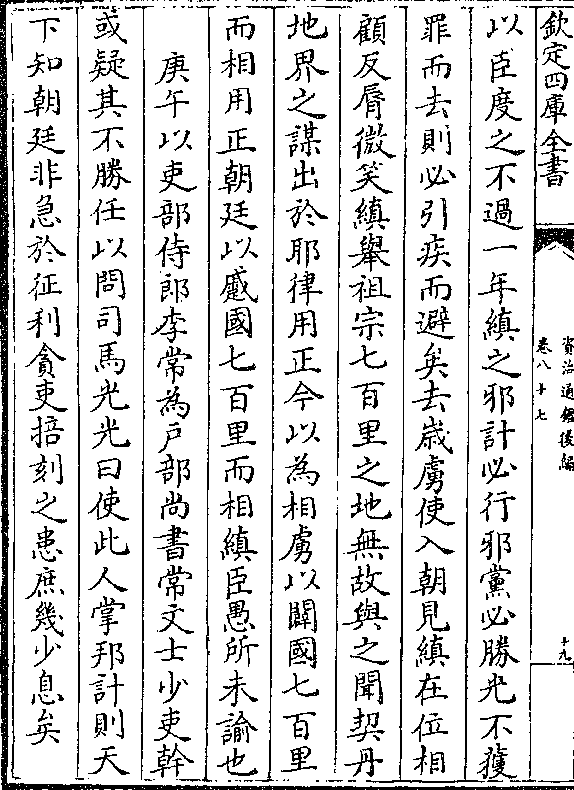 欽定四庫全書
資治通鑑後編
卷八十七
十九
以臣度之不過一年縝之邪計必行邪黨必勝光不獲
罪而去則必引疾而避矣去歳虜使入朝見縝在位相
顧反脣微笑縝舉祖宗七百里之地無故與之聞契丹
地界之謀出於耶律用正今以為相虜以闢國七百里
而相用正朝廷以蹙國七百里而相縝臣愚所未諭也
庚午以吏部侍郎李常為戸部尚書常文士少吏幹
或疑其不勝任以問司馬光光曰使此人掌邦計則天
下知朝廷非急於征利貪吏掊刻之患庶幾少息矣